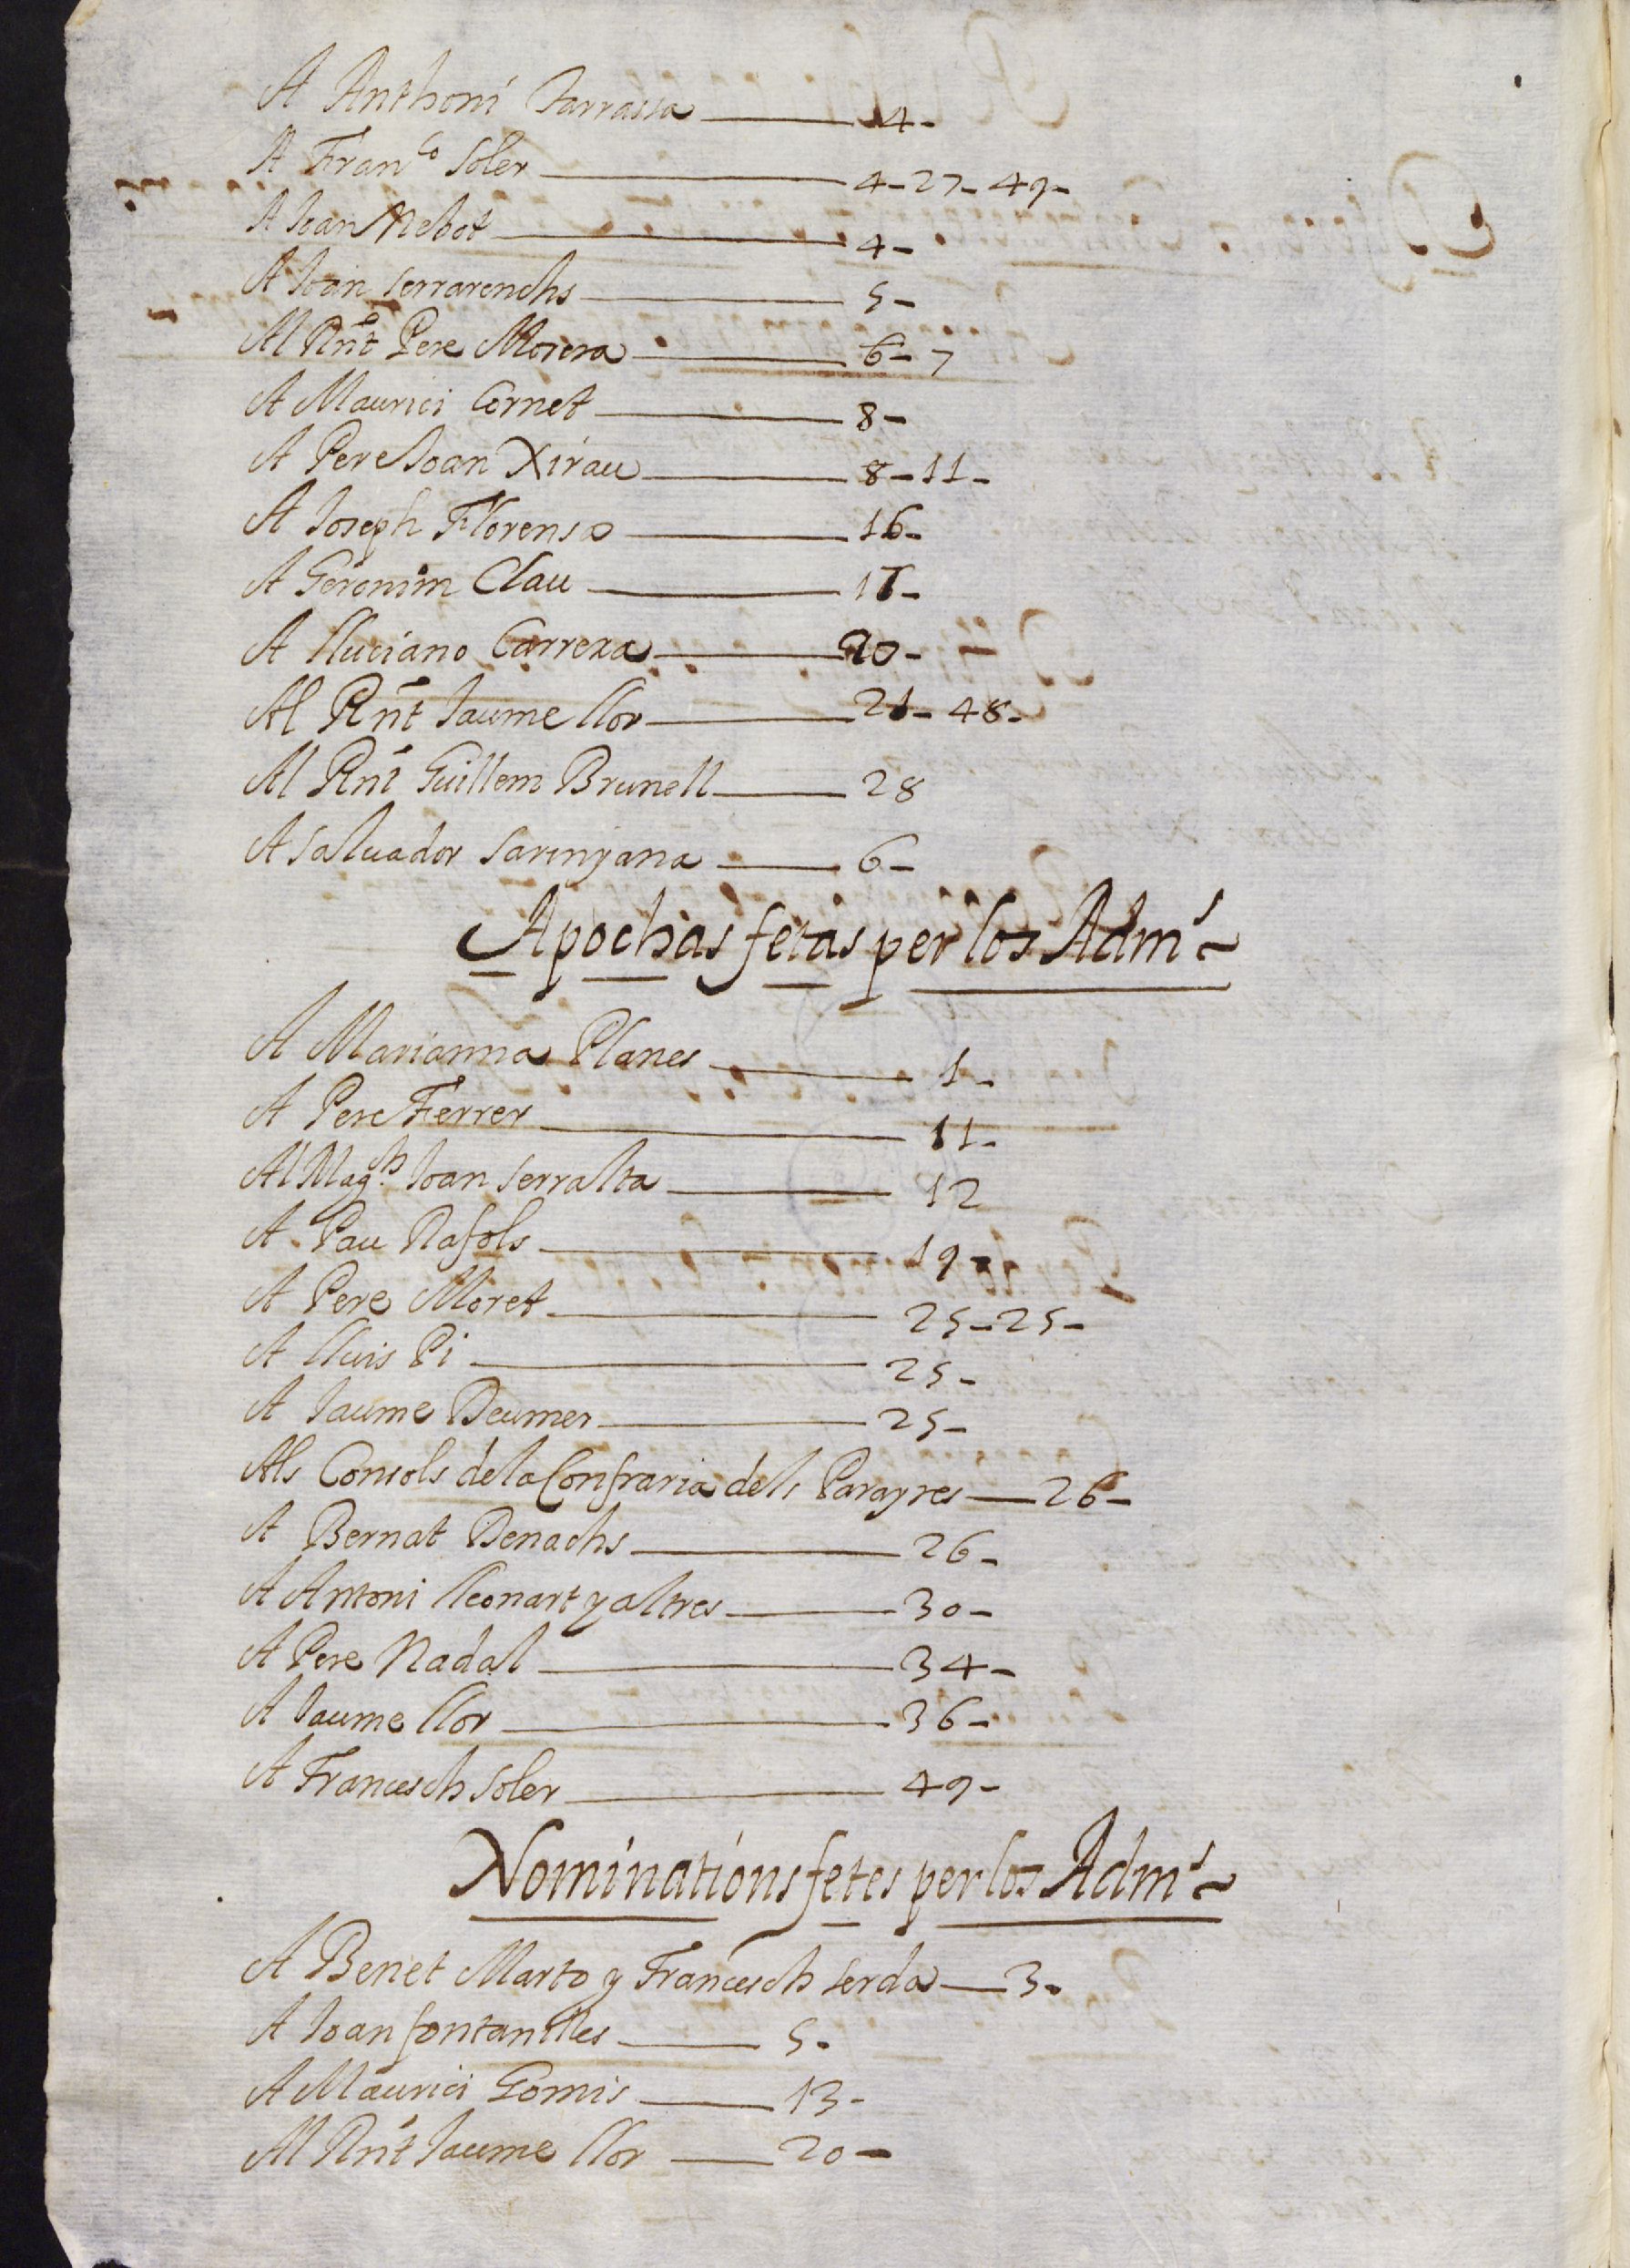 A Anthoni Tarrassa — 4-
A Fran.co Soler — 4-27-49-
A Joan Nebot — 4-
A Joan Serrarenchs — 5-
Al Rnt Pere Morera — 6-7
A Maurici Cornet — 8-
A Pere Joan Xirau — 8-11-
A Joseph Florensa — 16-
A Geronim Clau — 17-
A Lluciano Carrera — 20-
Al Rnt Jaume Llor — 21-48-
Al Rnt Guillem Brunell — 28
A Salvador Sarinyana — 6-
Apochas fetas per los Adm.s
A Marianna Planes — 1-
A Pere Ferrer — 11-
Al Mag.ch Joan Serralta — 12
A Pau Rafols — 19-
A Pere Moret — 25-25-
A Lluis Pi — 25-
A Jaume Deumer — 25-
Als Consols de la Confraria dels Parayres — 26-
A Bernat Denachs — 26-
A Antoni Lleonart y altres — 30-
A Pere Nadal — 34-
A Jaume Llor — 36-
A Francesch Soler — 49-
Nominations fetes per los Adm.s
A Benet Marto y Francesch Serda — 3-
A Joan fontanilles — 5-
A Maurici Gomis — 13-
Al Rnt Jaume Llor — 20-